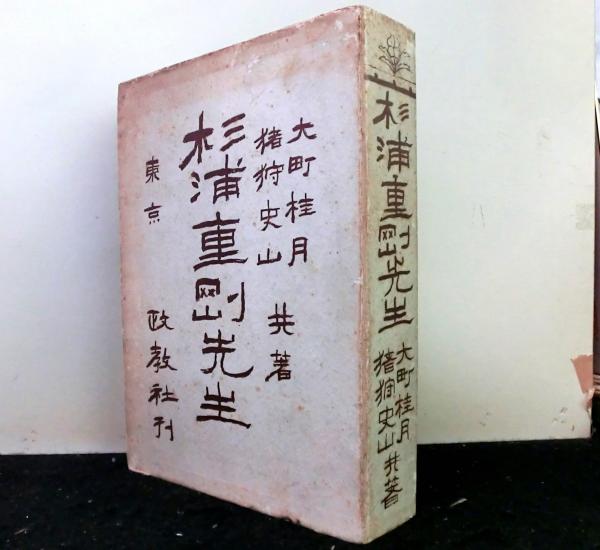 大町桂月
猪狩史山
共著
杉浦重剛先生
東京
政教社刊
杉浦重剛先生
大町桂月
猪狩史山
共著